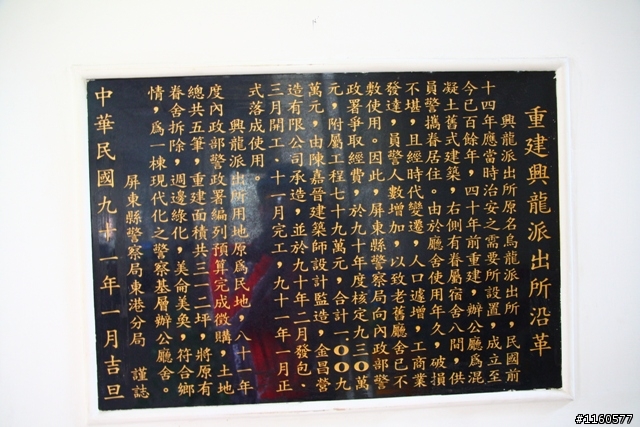 重建興龍派出所沿革
興龍派出所原名烏龍派出所，民國前
十四年應當時治安之需要所設置，成立至
今已百餘年，四十年前重建，辦公廳為混
凝土舊式建築，右側有眷屬宿舍八間，供
員警攜眷居住。由於廳舍使用年久，破損
不堪，且經時代變遷，人口遽增，工商業
發達，員警人數增加，以致老舊廳舍已不
敷使用。因此，屏東縣警察局向內政部警
政署爭取經費，於九十年度核定九三０萬
元，附屬工程七十九萬元，合計一、００九
萬元，由陳嘉晉建築師設計監造，金昌營
造有限公司承造，並於九十年二月發包、
三月開工、十一月完工，九十一年一月正
式落成使用。
興龍派出所用地原為民地，八十一年
度內政部警政署編列預算完成徵購，土地
總共五筆，重建面積共三一二坪，將原有
眷舍拆除，週邊綠化，美侖美奐，符合鄉
情，為一棟現代化之警察基層辦公廳舍。
屏東縣警察局東港分局　謹誌
中華民國九十一年一月吉旦
#1160577